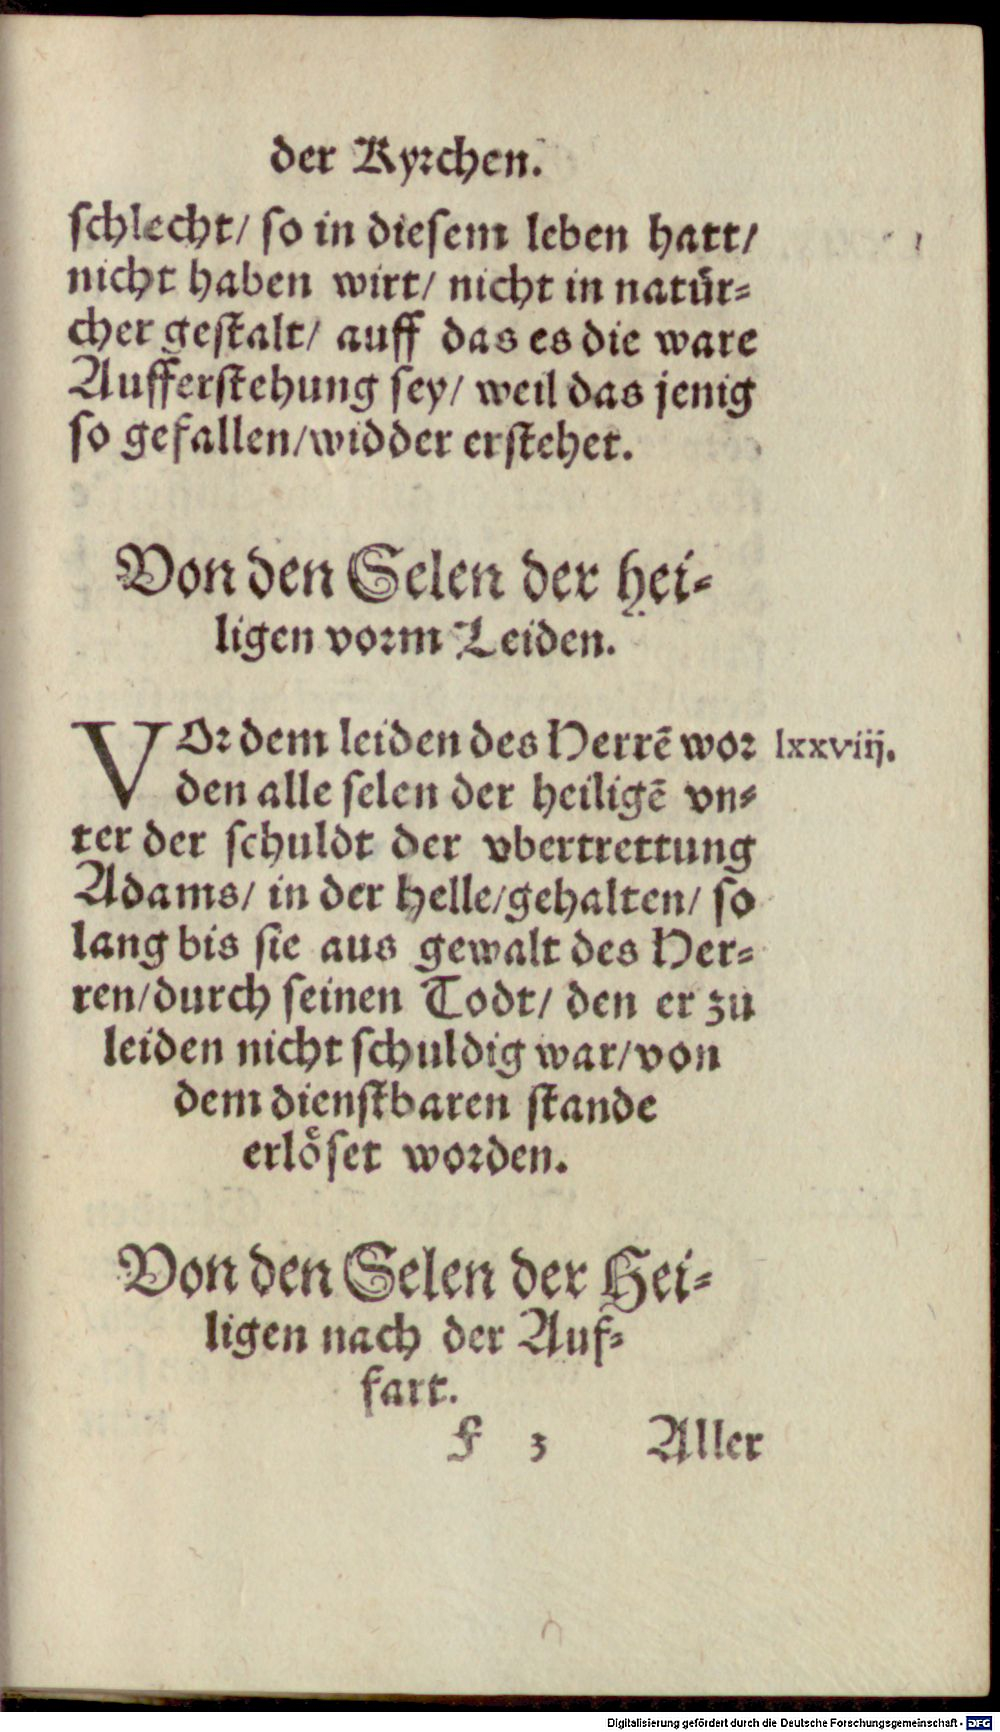 der Kyrchen.
schlecht/ so in diesem leben hatt/
nicht haben wirt/ nicht in natür-
cher gestalt/ auff das es die ware
Aufferstehung sey/ weil das jenig
so gefallen/widder erstehet.
Von den Selen der hei-
ligen vorm Leiden.
VOr dem leiden des Herrē wor lxxviij.
den alle selen der heiligē vn-
ter der schuldt der vbertrettung
Adams/ in der helle/gehalten/ so
lang bis sie aus gewalt des Her-
ren/durch seinen Todt/ den er zu
leiden nicht schuldig war/von
dem dienstbaren stande
erlöset worden.
Von den Selen der Hei-
ligen nach der Auf-
fart.
F 3 Aller
Digitalisierung gefördert durch die Deutsche Forschungsgemeinschaft - DFG